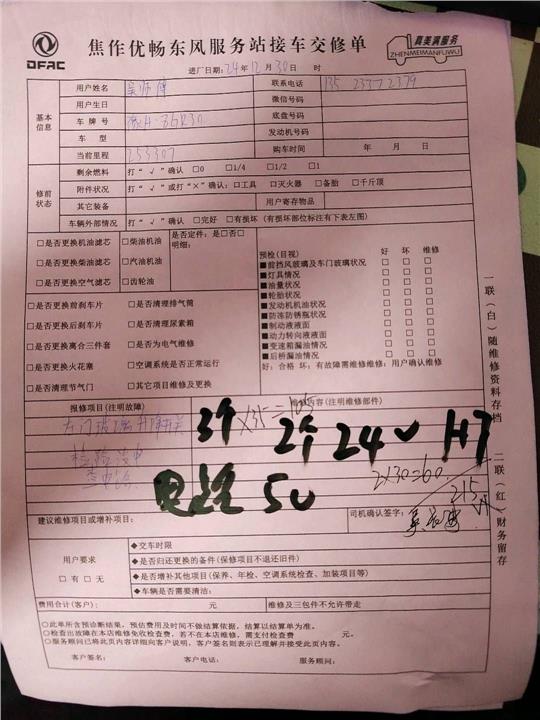 DFAC
焦作优畅东风服务站接车交修单
真美满服务
ZHENMEIMANFUWU
进厂日期: 24 年 12 月 30 日 时
基本信息
用户姓名 吴师傅 联系电话 135 2337 2379
用户生日 微信号码
车牌号 底盘号码
车型 发动机号码
当前里程 253307 购车时间 年 月 日
修前状态
剩余燃料 打“√”确认 □0 □1/4 □1/2 □1
附件状况 打“√”或打“×”确认: □工具 □灭火器 □备胎 □千斤顶
其它装备 用户寄存物品
车辆外部情况 打“√”确认 □完好 □有损坏 (有损坏部位标注有下表左图)
□是否更换机油滤芯 □柴油机油 是否定件: 是□否□
□是否更换柴油滤芯 □汽油机油 明细:
□是否更换空气滤芯 □齿轮油
□是否更换前刹车片 □是否清理排气筒
□是否更换后刹车片 □是否清理尿素箱
□是否更换离合三件套 □是否为电气维修
□是否更换火花塞 □空调系统是否正常运行
□是否清理节气门 □其它项目维修及更换
预检(目视) 好 坏 维修
■前挡风玻璃及车门玻璃状况 □ □ □
■灯具情况 □ □ □
■油量状况 □ □ □
■轮胎状况 □ □ □
■发动机机油状况 □ □ □
■防冻防锈瓶状况 □ □ □
■制动液液面 □ □ □
■动力转向液液面 □ □ □
■变速箱漏油情况 □ □ □
■后桥漏油情况 □ □ □
好: 合格 坏: 有故障需维修维修: 用户确认维修
报修项目(注明故障) 维修内容(注明维修部件)
左门玻璃升降开关 3个 ×35=105
2个 24V H7
2×30=60
电论 50
215
建议维修项目或增补项目: 司机确认签字:
用户要求
□有 □无
◆交车时限
◆是否归还更换的备件(保修项目不退还旧件)
◆是否增补其他项目(保养、年检、空调系统检查、加装项目等)
◆车辆是否需要清洁:
费用合计(客户): 元 维修及三包件不允许带走
○此单所含预诊断结果,预估费用及时间不做结算依据,结算以结算单为准。
○检查出故障在本店维修免收检查费,若不在本店维修,需支付检查费 元。
○服务顾问已将此页内容详细向客户说明,客户签名则表示已理解并接受此页内容。
客户签名: 客户电话: 服务顾问:
一联(白)随维修资料存档
二联(红)财务留存